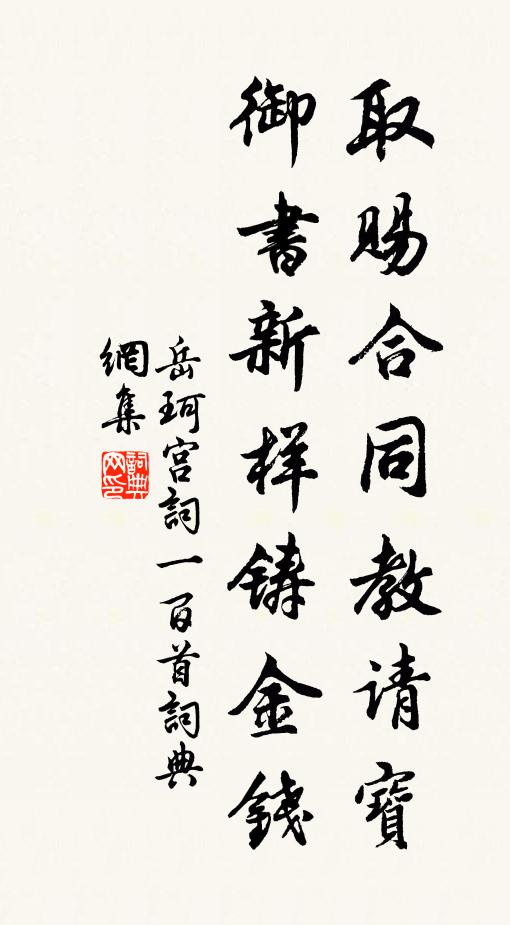 取賜合同教请寶
御書新样鑄金錢
岳珂宮詞一百首詞典
網集
詞典
网印